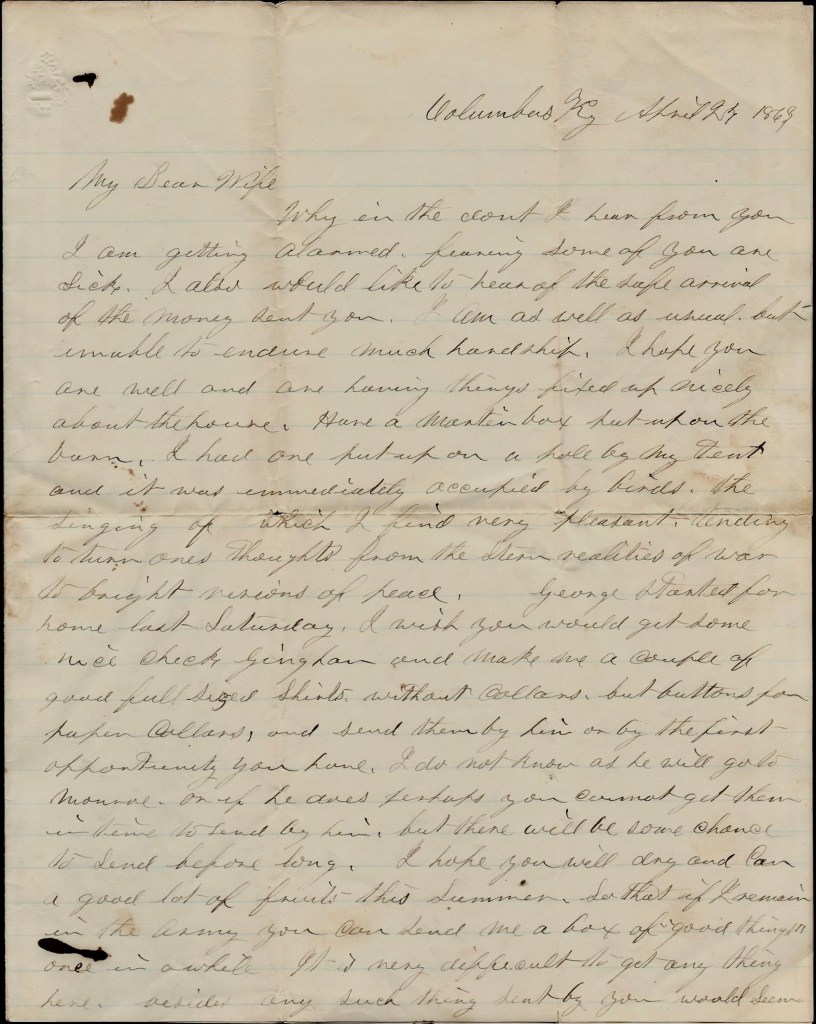 Columbus Ky April 27 1863
My Dear Wife
Why in the dont I hear from you
I am getting alarmed. fearing some of you are
Sick. I also would like to hear of the safe arrival
of the money sent you. I am as well as usual. but
unable to endure much hardship. I hope you
are well and are having things fixed up nicely
about the house. Have a Martin box put up on the
barn. I had one put up on a pole by my Tent
and it was immediately occupied by birds. the
singing of which I find very pleasant. tending
to turn ones thoughts from the stern realities of war
to bright visions of peace. George started for
home last Saturday. I wish you would get some
nice check Gingham and make me a couple of
good full sized shirts. without collars. but buttons for
paper Collars, and send them by him or by the first
opportunity you have. I do not know as he will go to
Monroe. or if he does perhaps you cannot get them
in time to send by him. but there will be some chance
to send before long. I hope you will dry and Can
a good lot of fruits this Summer. So that if I remain
in the Army you can send me a box of good things
once in a while It is very difficult to get any thing
here. besides any such thing sent by you would seem